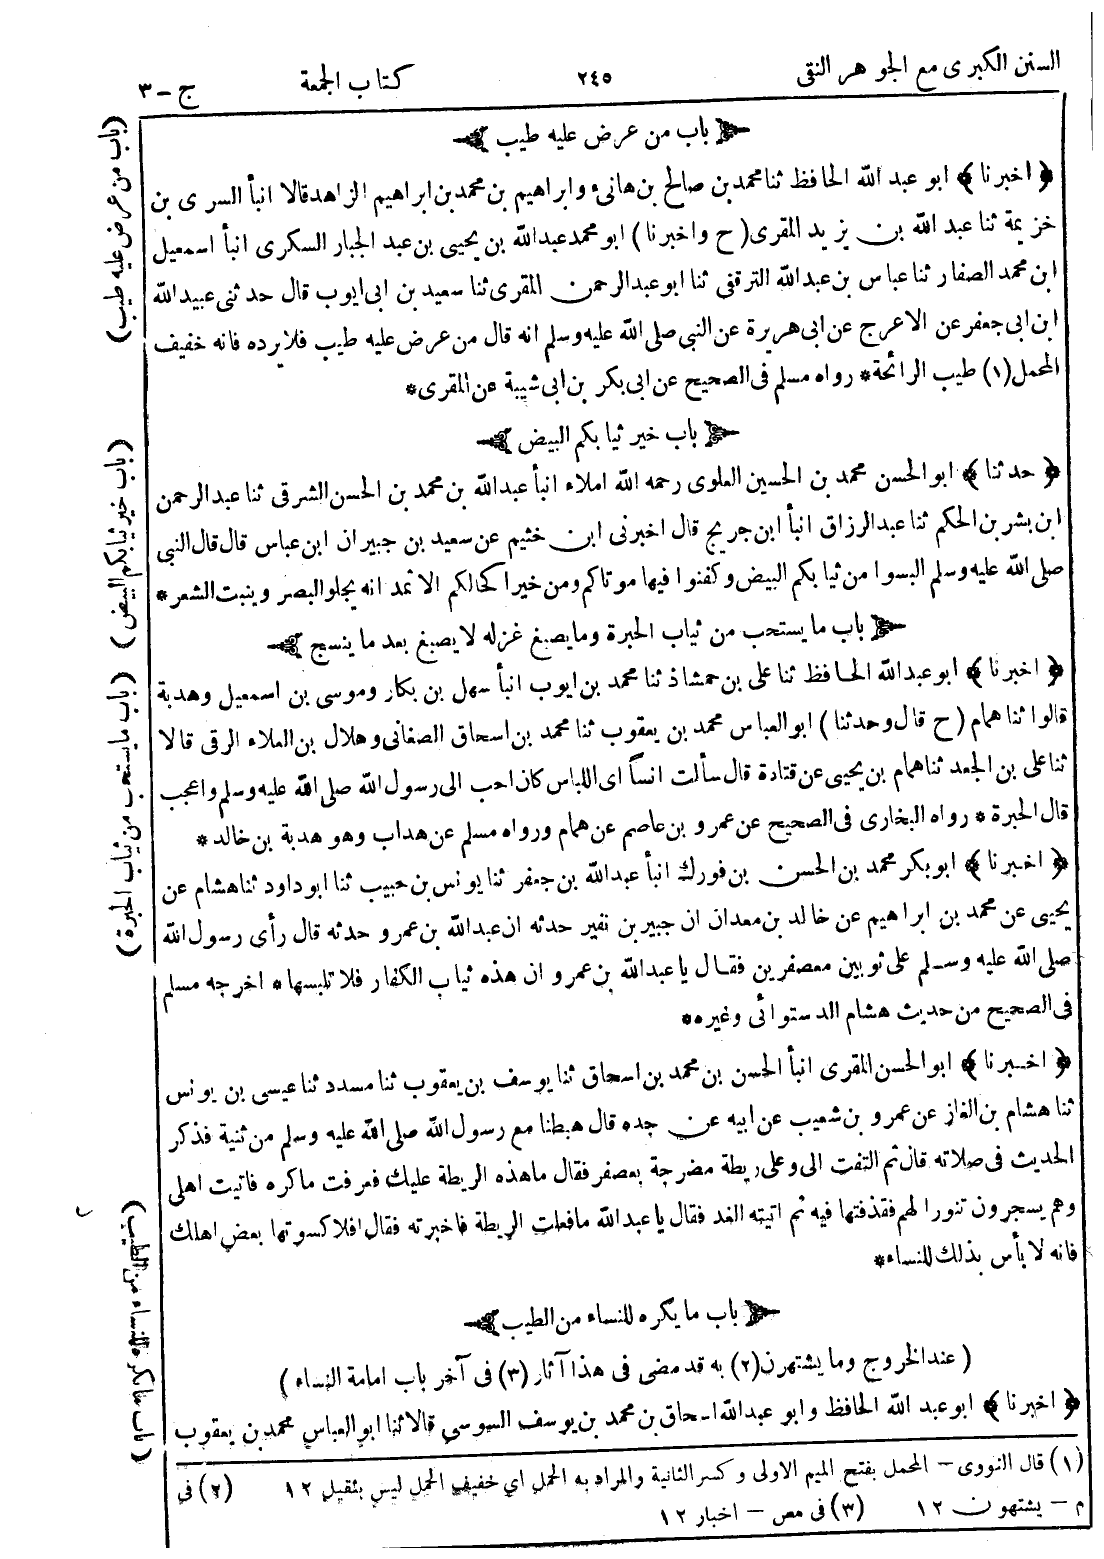 السنن الكبرى مع الجوهر النقى ٢٤٥ كتاب الجمعة ج - ٣
باب من عرض عليه طيب
﴿ اخبرنا ﴾ ابو عبد الله الحافظ ثنا محمد بن صالح بن هانئ وابراهيم بن محمد بن ابراهيم الزاهد قالا انبأ السرى بن
خزيمة ثنا عبد الله بن يزيد المقرى ( ح واخبرنا ) ابو محمد عبد الله بن يحيى بن عبد الجبار السكرى انبأ اسمعيل
ابن محمد الصفار ثنا عباس بن عبد الله الترقفى ثنا ابو عبد الرحمن المقرى ثنا سعيد بن ابى ايوب قال حدثنى عبيد الله
ابن ابى جعفر عن الاعرج عن ابى هريرة عن النبى صلى الله عليه وسلم انه قال من عرض عليه طيب فلا يرده فانه خفيف
المحمل (١) طيب الرائحة * رواه مسلم فى الصحيح عن ابى بكر بن ابى شيبة عن المقرى *
باب خير ثيابكم البيض
﴿ حدثنا ﴾ ابو الحسن محمد بن الحسين العلوى رحمه الله املاء انبأ عبد الله بن محمد بن الحسن الشرقى ثنا عبد الرحمن
ابن بشر بن الحكم ثنا عبد الرزاق انبأ ابن جريج قال اخبرنى ابن خثيم عن سعيد بن جبير ان ابن عباس قال قال النبى
صلى الله عليه وسلم البسوا من ثيابكم البيض وكفنوا فيها موتاكم ومن خير اكحالكم الاثمد انه يجلو البصر وينبت الشعر *
باب ما يستحب من ثياب الحبرة وما يصبغ غزله لا يصبغ بعد ما ينسج
﴿ اخبرنا ﴾ ابو عبد الله الحافظ ثنا على بن حمشاذ ثنا محمد بن ايوب انبأ سهل بن بكار وموسى بن اسمعيل وهدبة
قالوا ثنا همام ( ح قال وحدثنا ) ابو العباس محمد بن يعقوب ثنا محمد بن اسحاق الصغانى وهلال بن العلاء الرقى قالا
ثنا على بن الجعد ثنا همام بن يحيى عن قتادة قال سألت انساً اى اللباس كان احب الى رسول الله صلى الله عليه وسلم واعجب
قال الحبرة * رواه البخارى فى الصحيح عن عمرو بن عاصم عن همام ورواه مسلم عن هداب وهو هدبة بن خالد *
﴿ اخبرنا ﴾ ابو بكر محمد بن الحسن بن فورك انبأ عبد الله بن جعفر ثنا يونس بن حبيب ثنا ابو داود ثنا هشام عن
يحيى عن محمد بن ابراهيم عن خالد بن معدان ان جبير بن نفير حدثه ان عبد الله بن عمرو حدثه قال رأى رسول الله
صلى الله عليه وسلم على ثوبين معصفرين فقال يا عبد الله بن عمرو ان هذه ثياب الكفار فلا تلبسها * اخرجه مسلم
فى الصحيح من حديث هشام الدستوائى وغيره *
﴿ اخبرنا ﴾ ابو الحسن المقرى انبأ الحسن بن محمد بن اسحاق ثنا يوسف بن يعقوب ثنا مسدد ثنا عيسى بن يونس
ثنا هشام بن الغاز عن عمرو بن شعيب عن ابيه عن جده قال هبطنا مع رسول الله صلى الله عليه وسلم من ثنية فذكر
الحديث فى صلاته قال ثم التفت الى وعلى ريطة مضرجة بعصفر فقال ما هذه الريطة عليك فعرفت ما كره فاتيت اهلى
وهم يسجرون تنورا لهم فقذفتها فيه ثم اتيته الغد فقال يا عبد الله ما فعلت الريطة فاخبرته فقال افلا كسوتها بعض اهلك
فانه لا بأس بذلك للنساء *
باب ما يكره للنساء من الطيب
( عند الخروج وما يشتهرن (٢) به قد مضى فى هذا آثار (٣) فى آخر باب امامة النساء )
﴿ اخبرنا ﴾ ابو عبد الله الحافظ وابو عبد الله اسحاق بن محمد بن يوسف السوسى قالا ثنا ابو العباس محمد بن يعقوب
(١) قال النووى - المحمل بفتح الميم الاولى وكسر الثانية والمراد به الحمل اي خفيف الحمل ليس بثقيل ١٢ (٢) في
م - يشتهون ١٢ (٣) فى مص - اخبار ١٢
(باب من عرض عليه طيب)
(باب خير ثيابكم البيض)
(باب ما يستحب من ثياب الحبرة)
(باب ما يكره للنساء من الطيب)